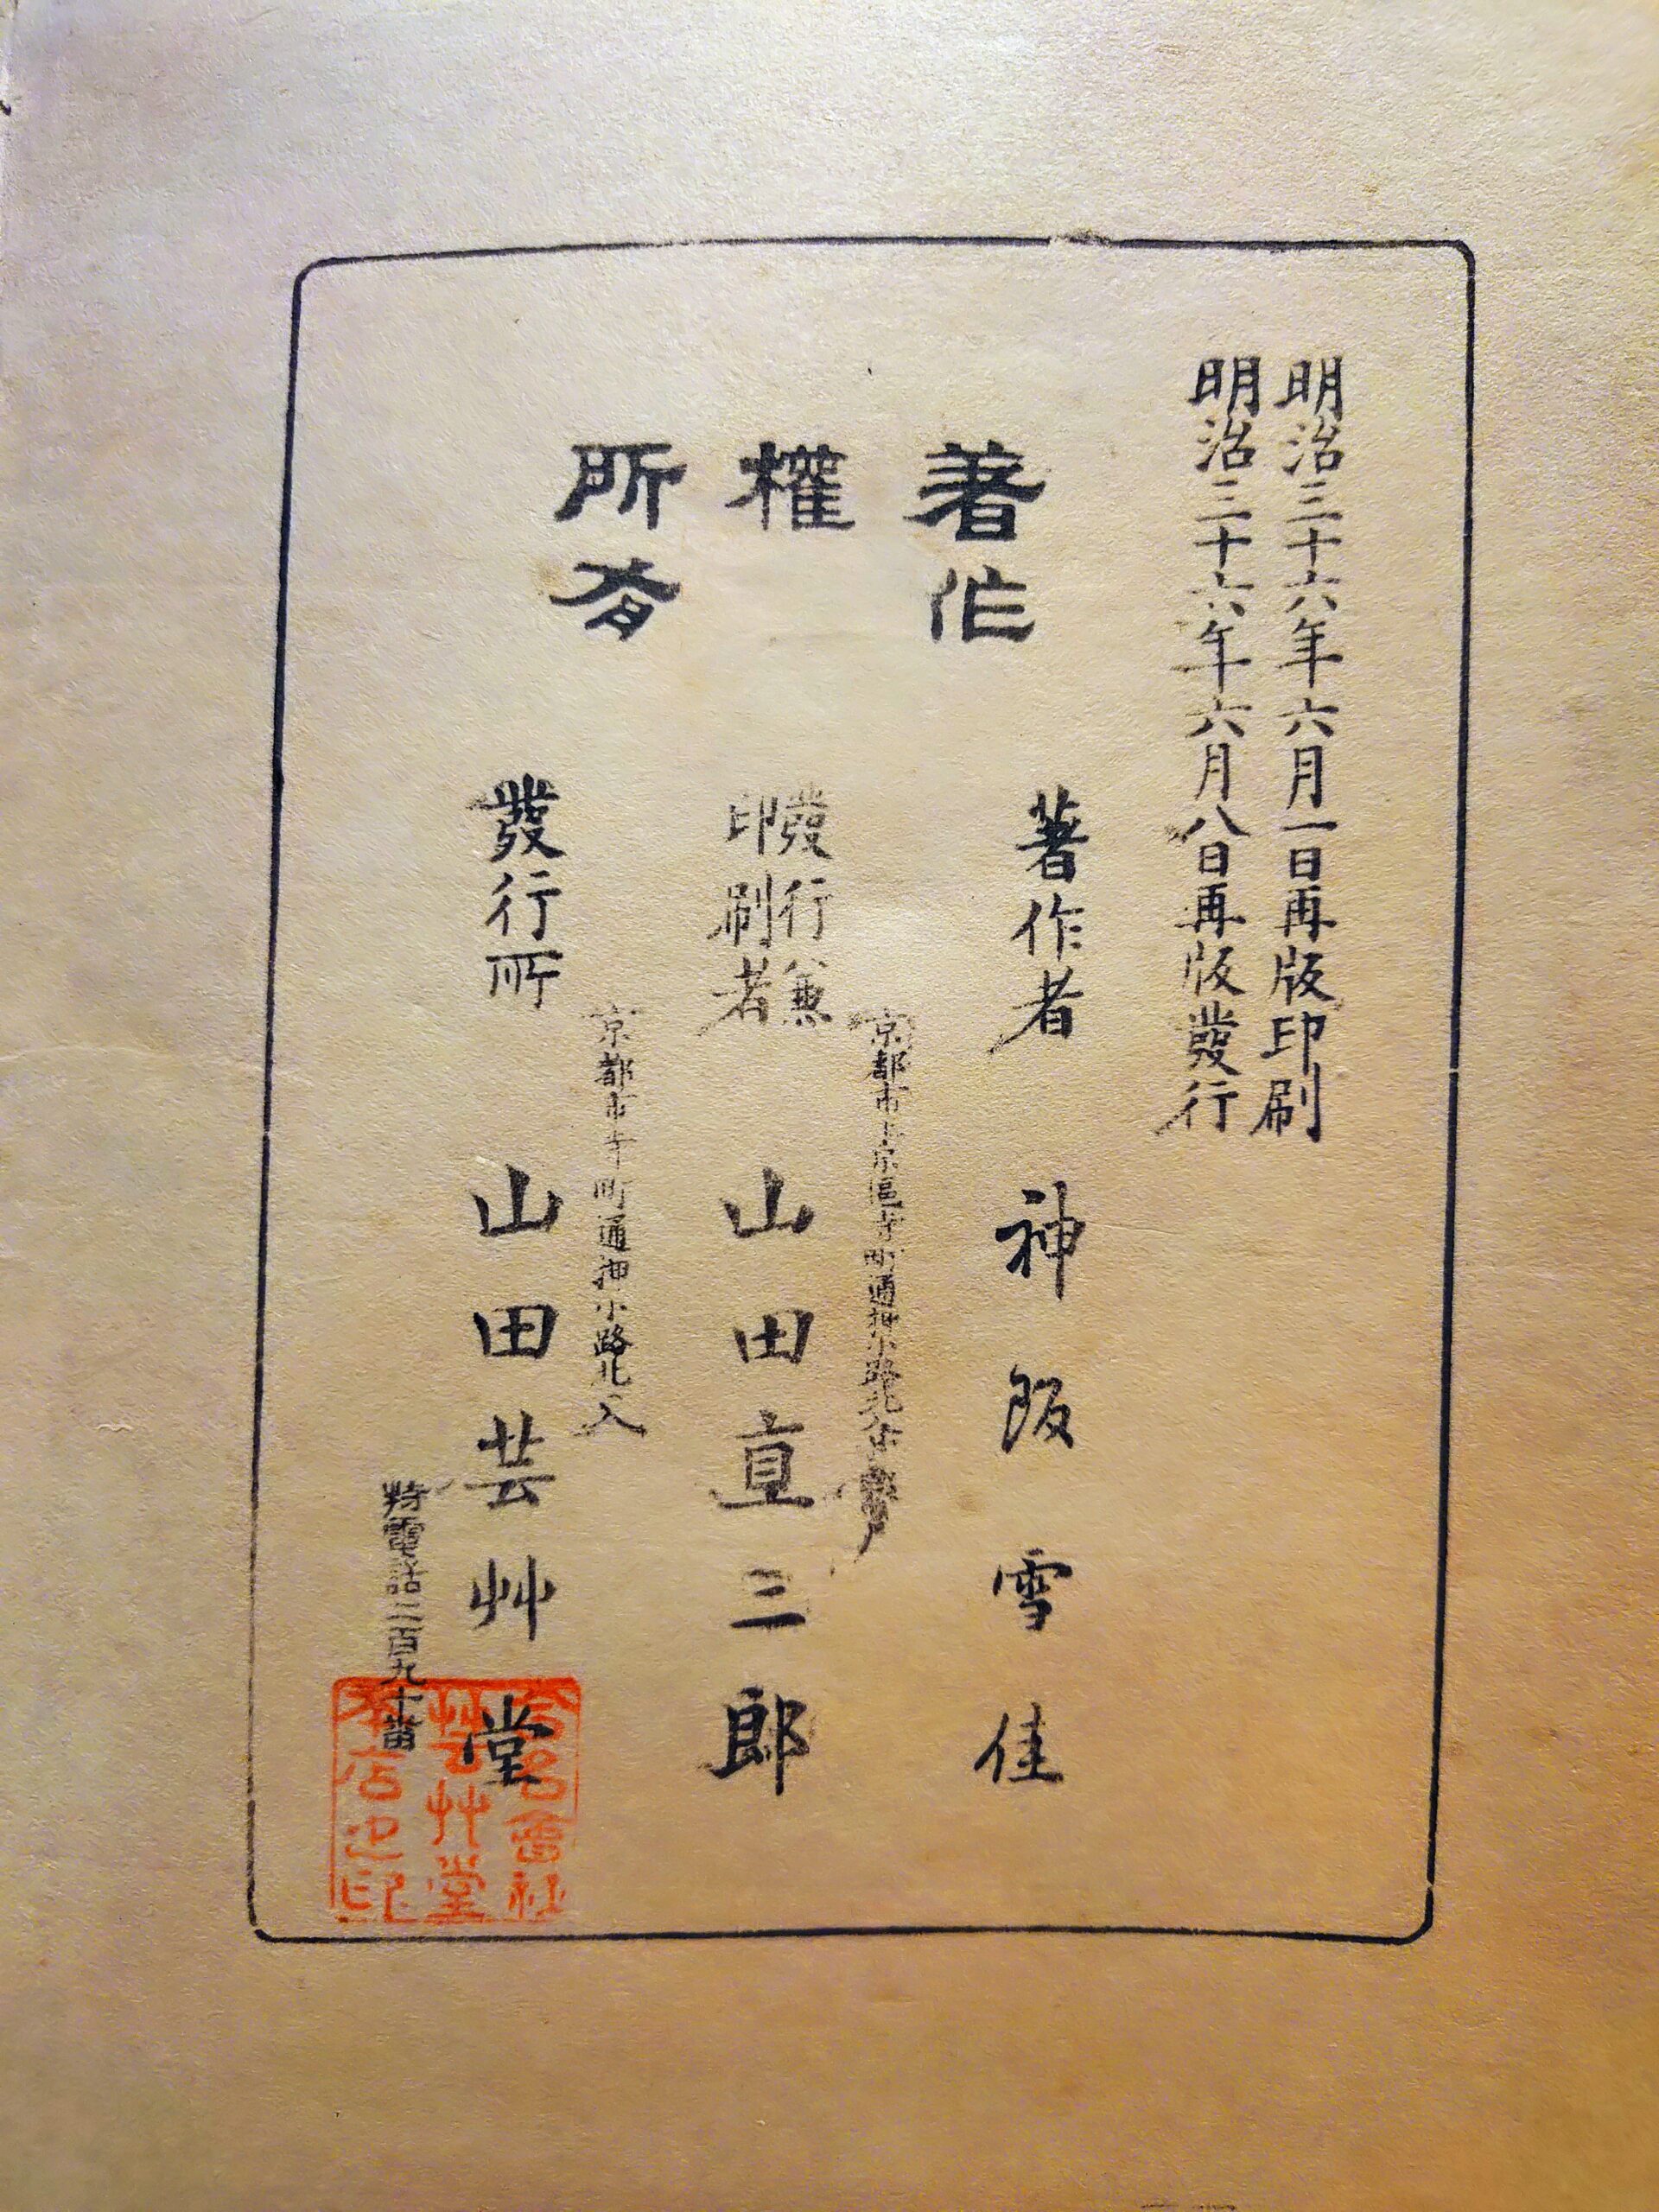 明治三十六年六月一日再版印刷
明治三十六年六月八日再版發行
著作
權
所有
著作者
神飯雪佳
京都市上京區寺町通押小路北入
發行兼
印刷者
山田直三郎
京都市寺町通押小路北入
發行所
山田芸艸堂
特電話二百九十番
合名會社
芸艸堂
本店之印